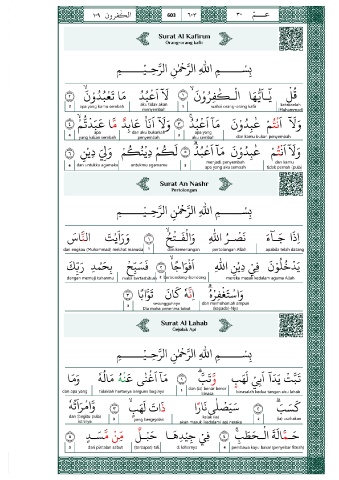 الكفرون ١٠٩ 603 ٦٠٣ عمّ ٣٠
Surat Al Kafirun
Orang-orang kafir
بِسْمِ اللّٰهِ الرَّحْمٰنِ الرَّحِيْمِ
قُلْ يٰٓاَيُّهَا الْكٰفِرُوْنَۙ لَآ اَعْبُدُ مَا تَعْبُدُوْنَۙ
katakanlah (Muhammad) wahai orang-orang kafir aku tidak akan menyembah apa yang kamu sembah
وَلَآ اَنْتُمْ عٰبِدُوْنَ مَآ اَعْبُدُۚ وَلَآ اَنَا۠ عَابِدٌ مَّا عَبَدْتُّمْۙ
dan kamu bukan penyembah apa yang aku sembah dan aku bukanlah penyembah apa yang kalian sembah
وَلَآ اَنْتُمْ عٰبِدُوْنَ مَآ اَعْبُدُۗ لَكُمْ دِيْنُكُمْ وَلِيَ دِيْنِ
dan kamu tidak pernah (pula) menjadi penyembah apa yang aku sembah untukmu agamamu dan untukku agamaku
Surat An Nashr
Pertolongan
بِسْمِ اللّٰهِ الرَّحْمٰنِ الرَّحِيْمِ
اِذَا جَاۤءَ نَصْرُ اللّٰهِ وَالْفَتْحُۙ وَرَاَيْتَ النَّاسَ
apabila telah datang pertolongan Allah dan kemenangan dan engkau (Muhammad) melihat manusia
يَدْخُلُوْنَ فِيْ دِيْنِ اللّٰهِ اَفْوَاجًاۙ فَسَبِّحْ بِحَمْدِ رَبِّكَ
mereka masuk kedalam agama Allah berbondong-bondong maka bertasbihlah dengan memuji tuhanmu
وَاسْتَغْفِرْهُۗ اِنَّهٗ كَانَ تَوَّابًا
dan memohonlah ampun (kepada)-Nya sesungguhnya Dia maha penerima tobat
Surat Al Lahab
Gejolak Api
بِسْمِ اللّٰهِ الرَّحْمٰنِ الرَّحِيْمِ
تَبَّتْ يَدَآ اَبِيْ لَهَبٍ وَّتَبَّۗ مَآ اَغْنٰى عَنْهُ مَالُهٗ وَمَا
binasalah kedua tangan abu lahab dan dia benar benar binasa tidaklah hartanya berguna baginya dan apa yang
كَسَبَۗ سَيَصْلٰى نَارًا ذَاتَ لَهَبٍۙ وَّامْرَاَتُهٗۗ
dia usahakan kelak dia akan masuk kedalam api neraka yang bergejolak dan (begitu pula) istrinya
حَمَّالَةَ الْحَطَبِۚ فِيْ جِيْدِهَا حَبْلٌ مِّنْ مَّسَدٍ
pembawa kayu bakar (penyebar fitnah) di lehernya (terdapat) tali dari pintalan sabut